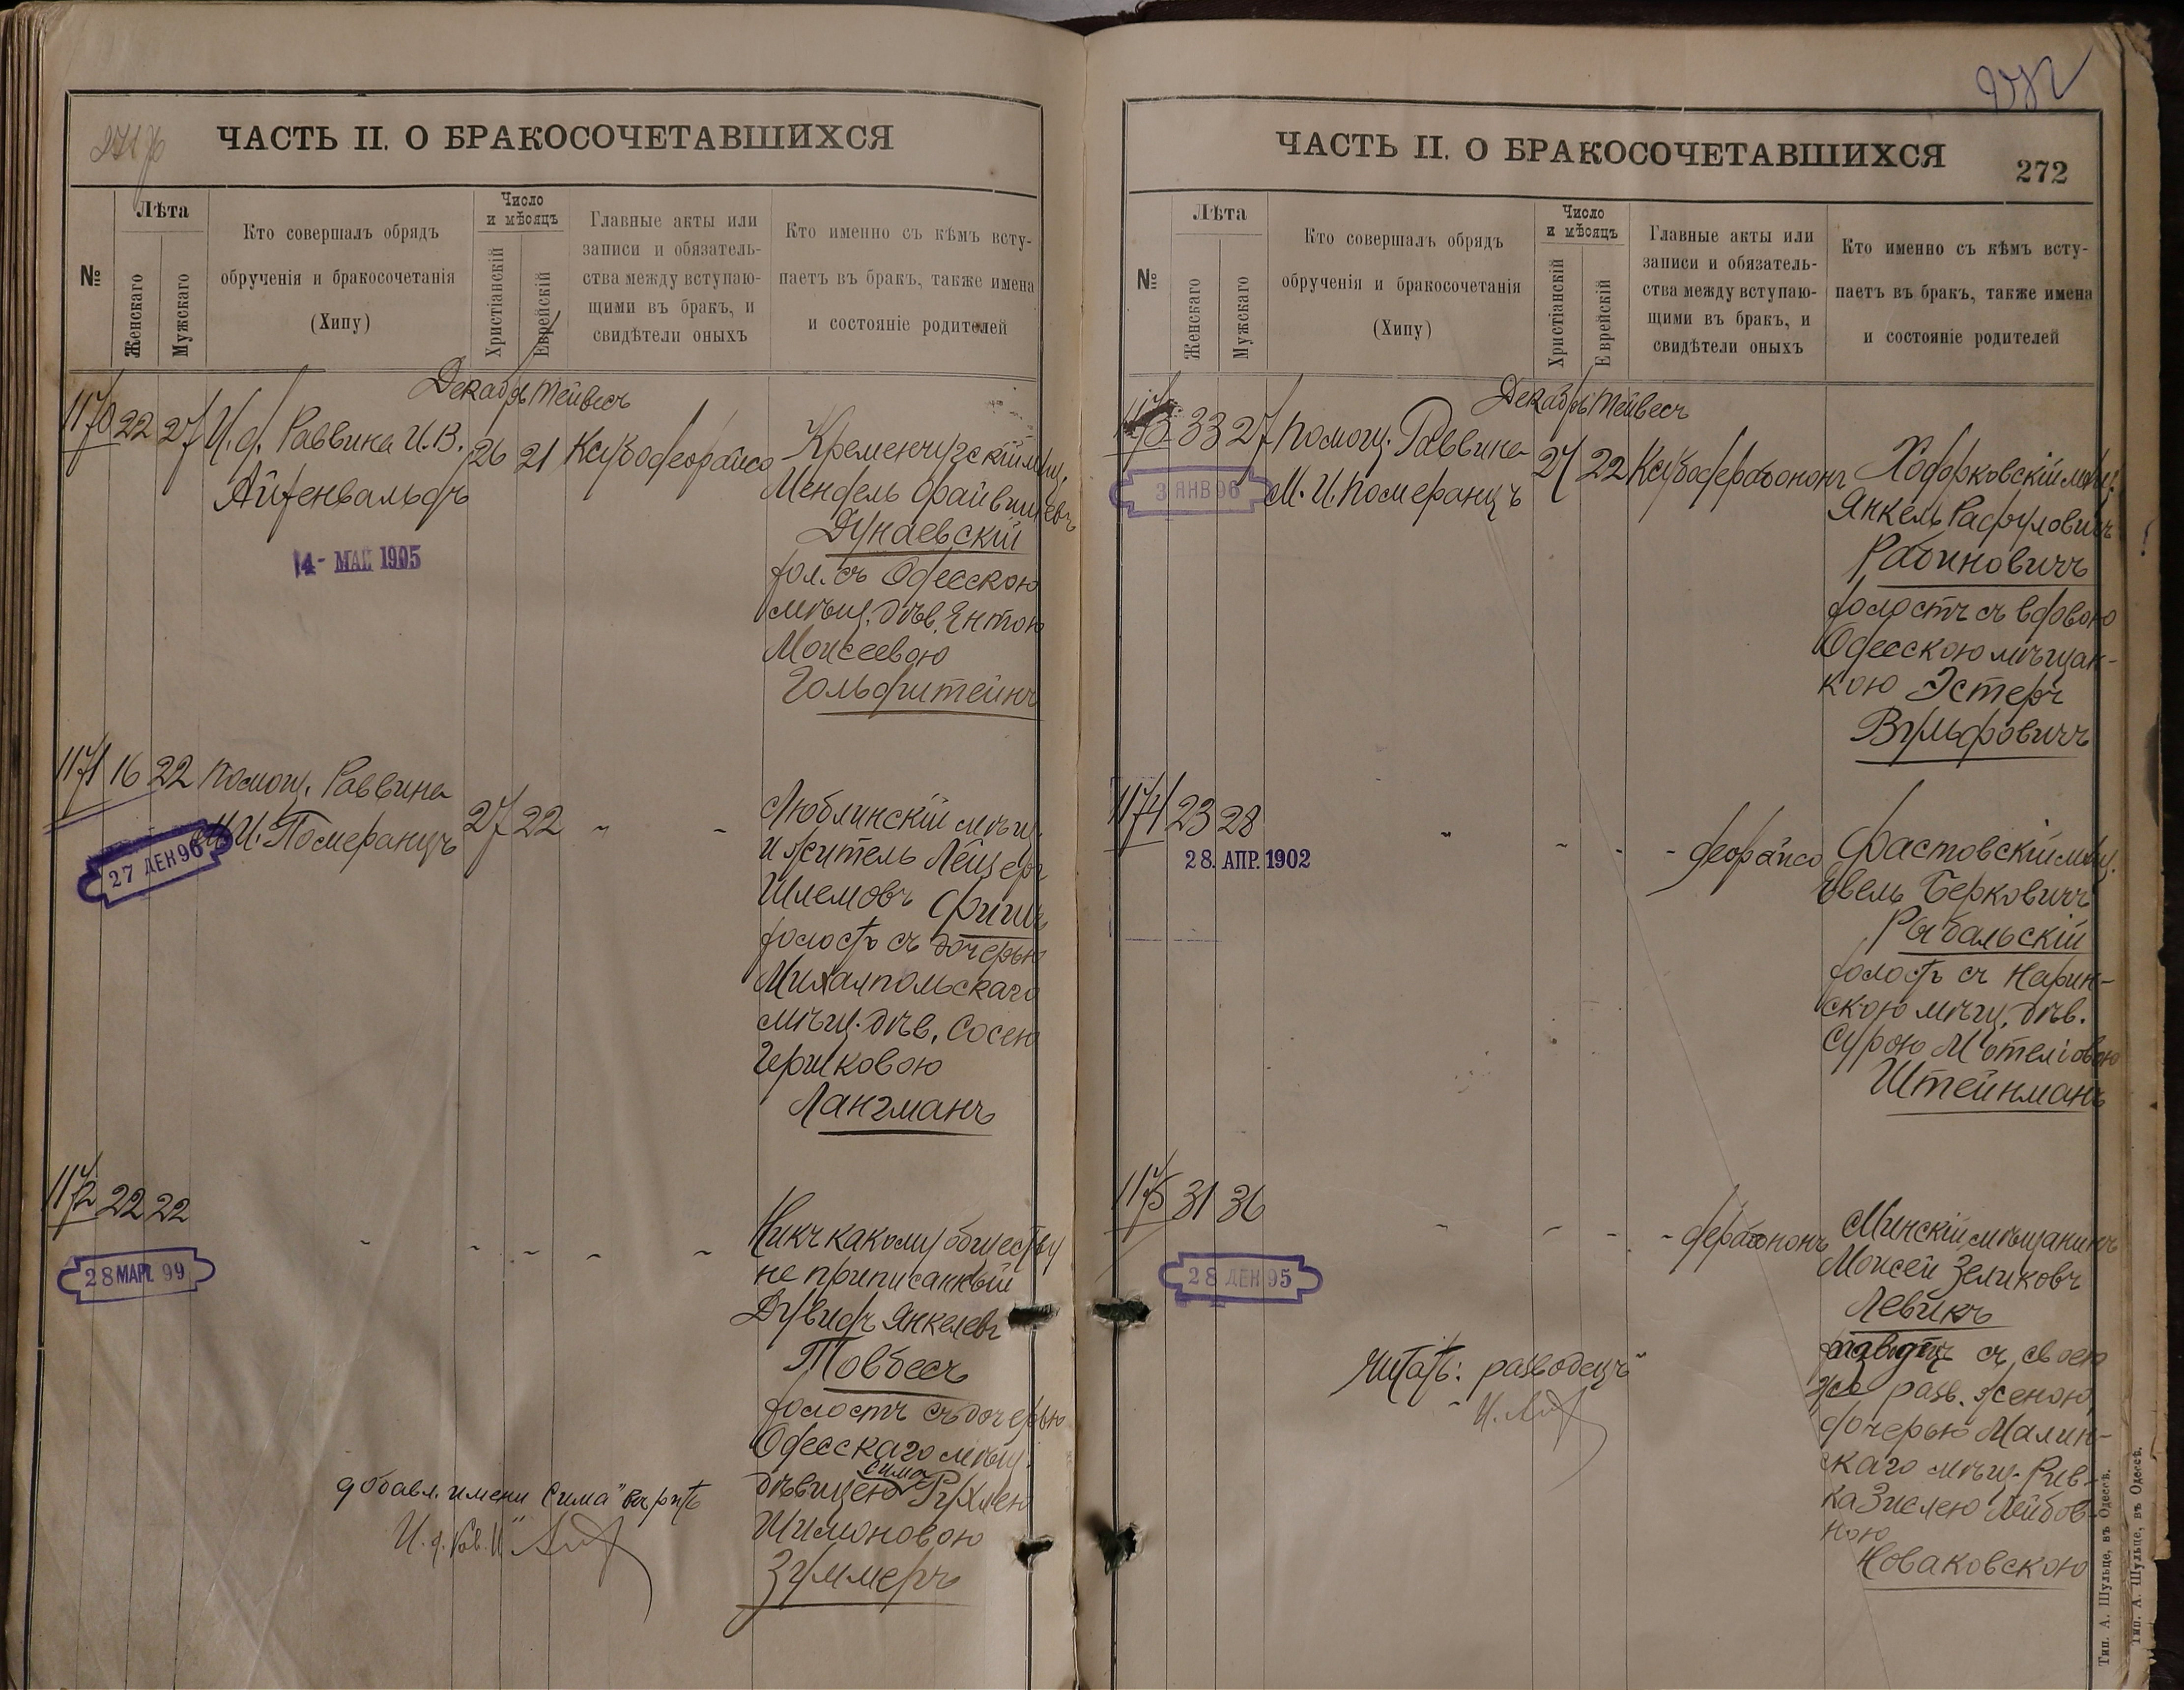 ЧАСТЬ II. О БРАКОСОЧЕТАВШИХСЯ
№
Лѣта
Женскаго
Мужскаго
Кто совершалъ обрядъ
обрученія и бракосочетанія
(Хипу)
Число
и мѣсяцъ
Христіанскій
Еврейскій
Главные акты или
записи и обязатель-
ства между вступаю-
щими въ бракъ, и
свидѣтели оныхъ
Кто именно съ кѣмъ всту-
паетъ въ бракъ, также имена
и состояніе родителей
Декабрь Тейвесъ
1170 22 27 И. д. Раввина И. В.
Айзенвальдъ
26 21
14 - МАЙ 1905
Кременчугскій мѣщ.
Мендель Фрайвишевъ
Дунаевскій
хол. съ Одесскою
мѣщ. дѣв. Ентою
Моисеевою
Гольдштейнъ
1171 16 22 Помощ. Раввина
М. И. Померанцъ
27 22 " "
27 ДЕК 96
Люблинскій мѣщ.
и житель Лейзеръ
Шлемовъ Фишъ
холостъ съ дочерью
Михалпольскаго
мѣщ. дѣв. Сосею
Гершковою
Лангманъ
1172 22 22 " " " " "
28 МАР. 99
Ни къ какому обществу
не приписанный
Дувидъ Янкелевъ
Товбесъ
холостъ съ дочерью
Одесскаго мѣщ.
Сима
дѣвицею Рухлею
Шимоновою
Зуммеръ
добавл. имени "Сима" вѣрить
И. д. Рав. И.
ЧАСТЬ II. О БРАКОСОЧЕТАВШИХСЯ
272
№
Лѣта
Женскаго
Мужскаго
Кто совершалъ обрядъ
обрученія и бракосочетанія
(Хипу)
Число
и мѣсяцъ
Христіанскій
Еврейскій
Главные акты или
записи и обязатель-
ства между вступаю-
щими въ бракъ, и
свидѣтели оныхъ
Кто именно съ кѣмъ всту-
паетъ въ бракъ, также имена
и состояніе родителей
Декабрь Тейвесъ
1173 33 27 Помощ. Раввина
М. И. Померанцъ
27 22
3 ЯНВ 96
Ходорковскій мѣщ.
Янкель Рафуловичъ
Рабиновичъ
холостъ съ вдовою
Одесскою мѣщан-
кою Эстеръ
Вульфовичъ
1174 23 28 " " "
28. АПР. 1902
Фастовскій мѣщ.
Іовель Берковичъ
Рыбальскій
холостъ съ Нарин-
скою мѣщ. дѣв.
Сурою Мотеліовою
Штейнманъ
1175 31 36 " " "
28 ДЕК 95
Минскій мѣщанинъ
Моисей Зеликовъ
Левикъ
съ своею
же разв. женою,
дочерью Малин-
скаго мѣщ. Рив-
ка Зислею Лейбов-
ною
Новаковскою
читать: "разводецъ"
Тип. А. Шульце, въ Одессѣ.
Тип. А. Шульце, въ Одессѣ.